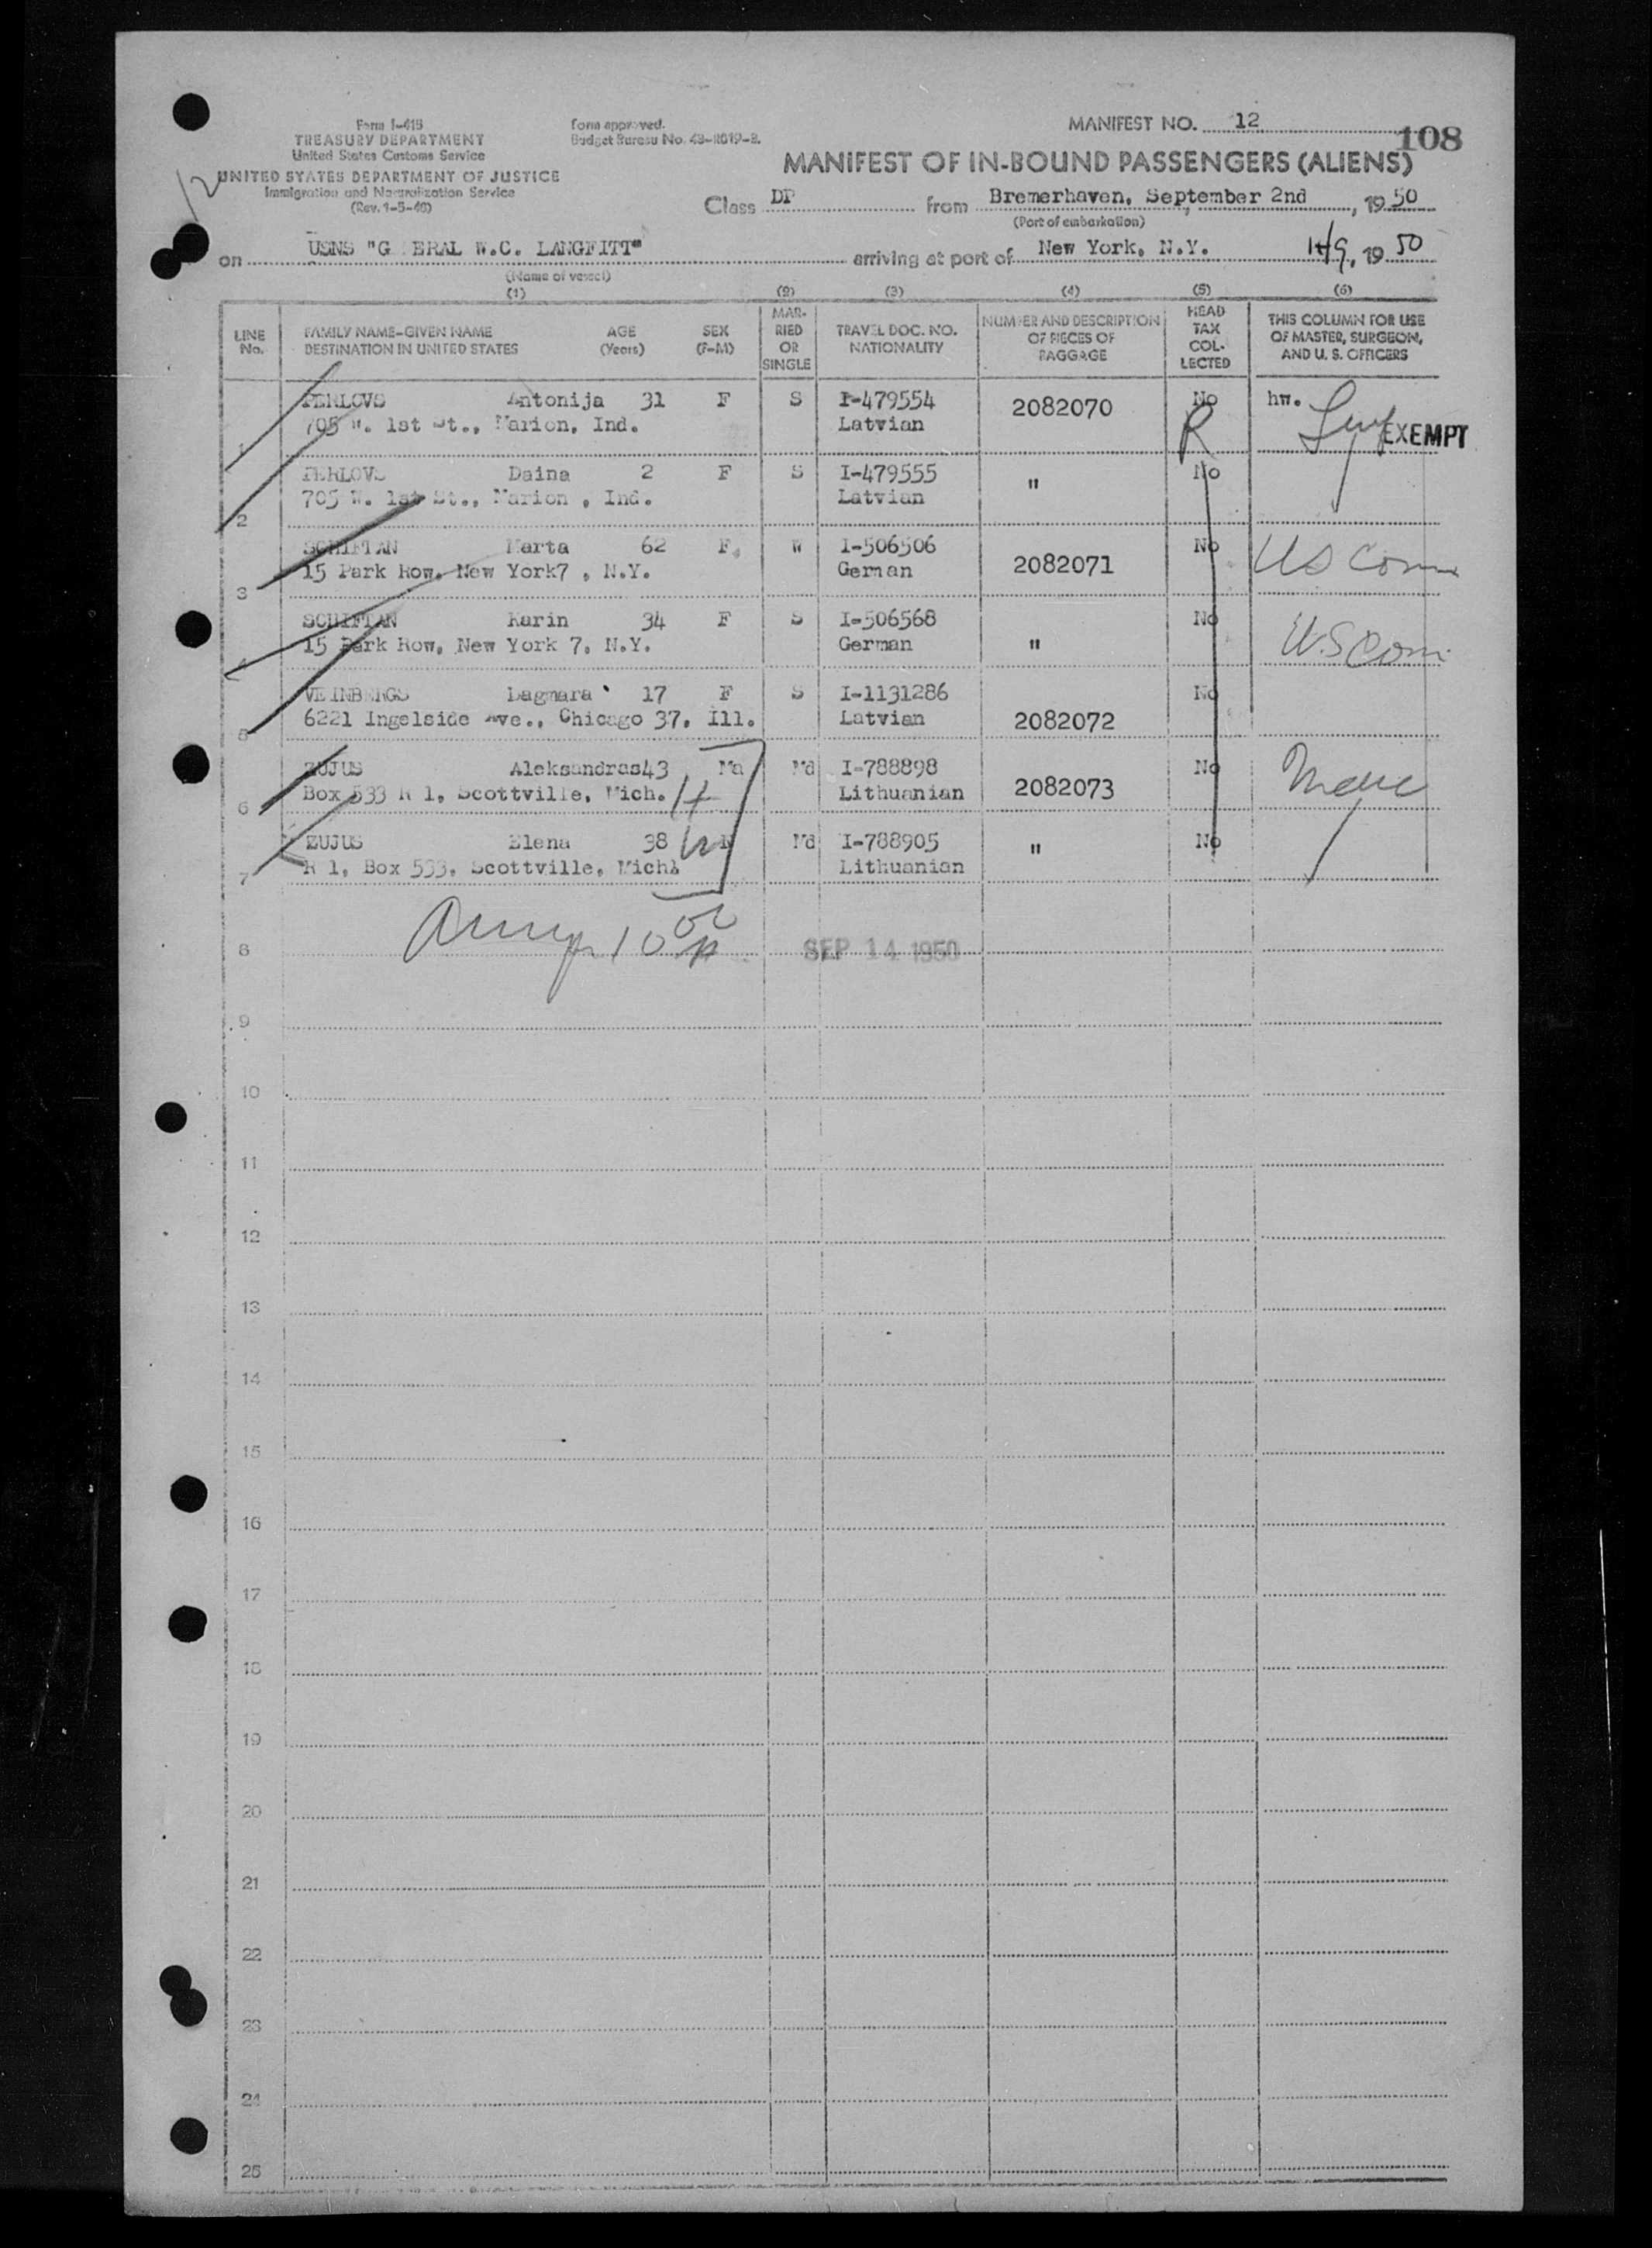 12
Form I-415
TREASURY DEPARTMENT
United States Customs Service
UNITED STATES DEPARTMENT OF JUSTICE
Immigration and Naturalization Service
(Rev. 1-5-46)
Form approved.
Budget Bureau No. 43-R019-2.
MANIFEST NO. 12
108
MANIFEST OF IN-BOUND PASSENGERS (ALIENS)
Class DP from Bremerhaven, September 2nd, 1950
(Port of embarkation)
on USNS "G ERAL W.C. LANGFITT" arriving at port of New York, N.Y. 14/9, 1950
(Name of vessel)
(1) (2) (3) (4) (5) (6)
LINE No. FAMILY NAME-GIVEN NAME DESTINATION IN UNITED STATES AGE (Years) SEX (F-M) MARRIED OR SINGLE TRAVEL DOC. NO. NATIONALITY NUMBER AND DESCRIPTION OF PIECES OF BAGGAGE HEAD TAX COLLECTED THIS COLUMN FOR USE OF MASTER, SURGEON, AND U. S. OFFICERS
PERLOVS Antonija 31 F S I-479554 2082070 No hw.
1 705 W. 1st St., Marion, Ind. Latvian R EXEMPT
PERLOVS Daina 2 F S I-479555 " No
2 705 W. 1st St., Marion , Ind. Latvian
SCHIFTAN Marta 62 F. W I-506506 2082071 No US Com
3 15 Park Row, New York7 , N.Y. German
SCHIFTAN Karin 34 F S I-506568 " No U.S Com
4 15 Park Row, New York 7, N.Y. German
VEINBERGS Dagmara 17 F S I-1131286 2082072 No
5 6221 Ingelside Ave., Chicago 37, Ill. Latvian
ZUJUS Aleksandras43 Ma Md I-788898 2082073 No
6 Box 533 R 1, Scottville, Mich. H Lithuanian
ZUJUS Elena 38 W F Md I-788905 " No
7 R 1, Box 533, Scottville, Mich. Lithuanian
8 10 SEP 14 1950
9
10
11
12
13
14
15
16
17
18
19
20
21
22
23
24
25